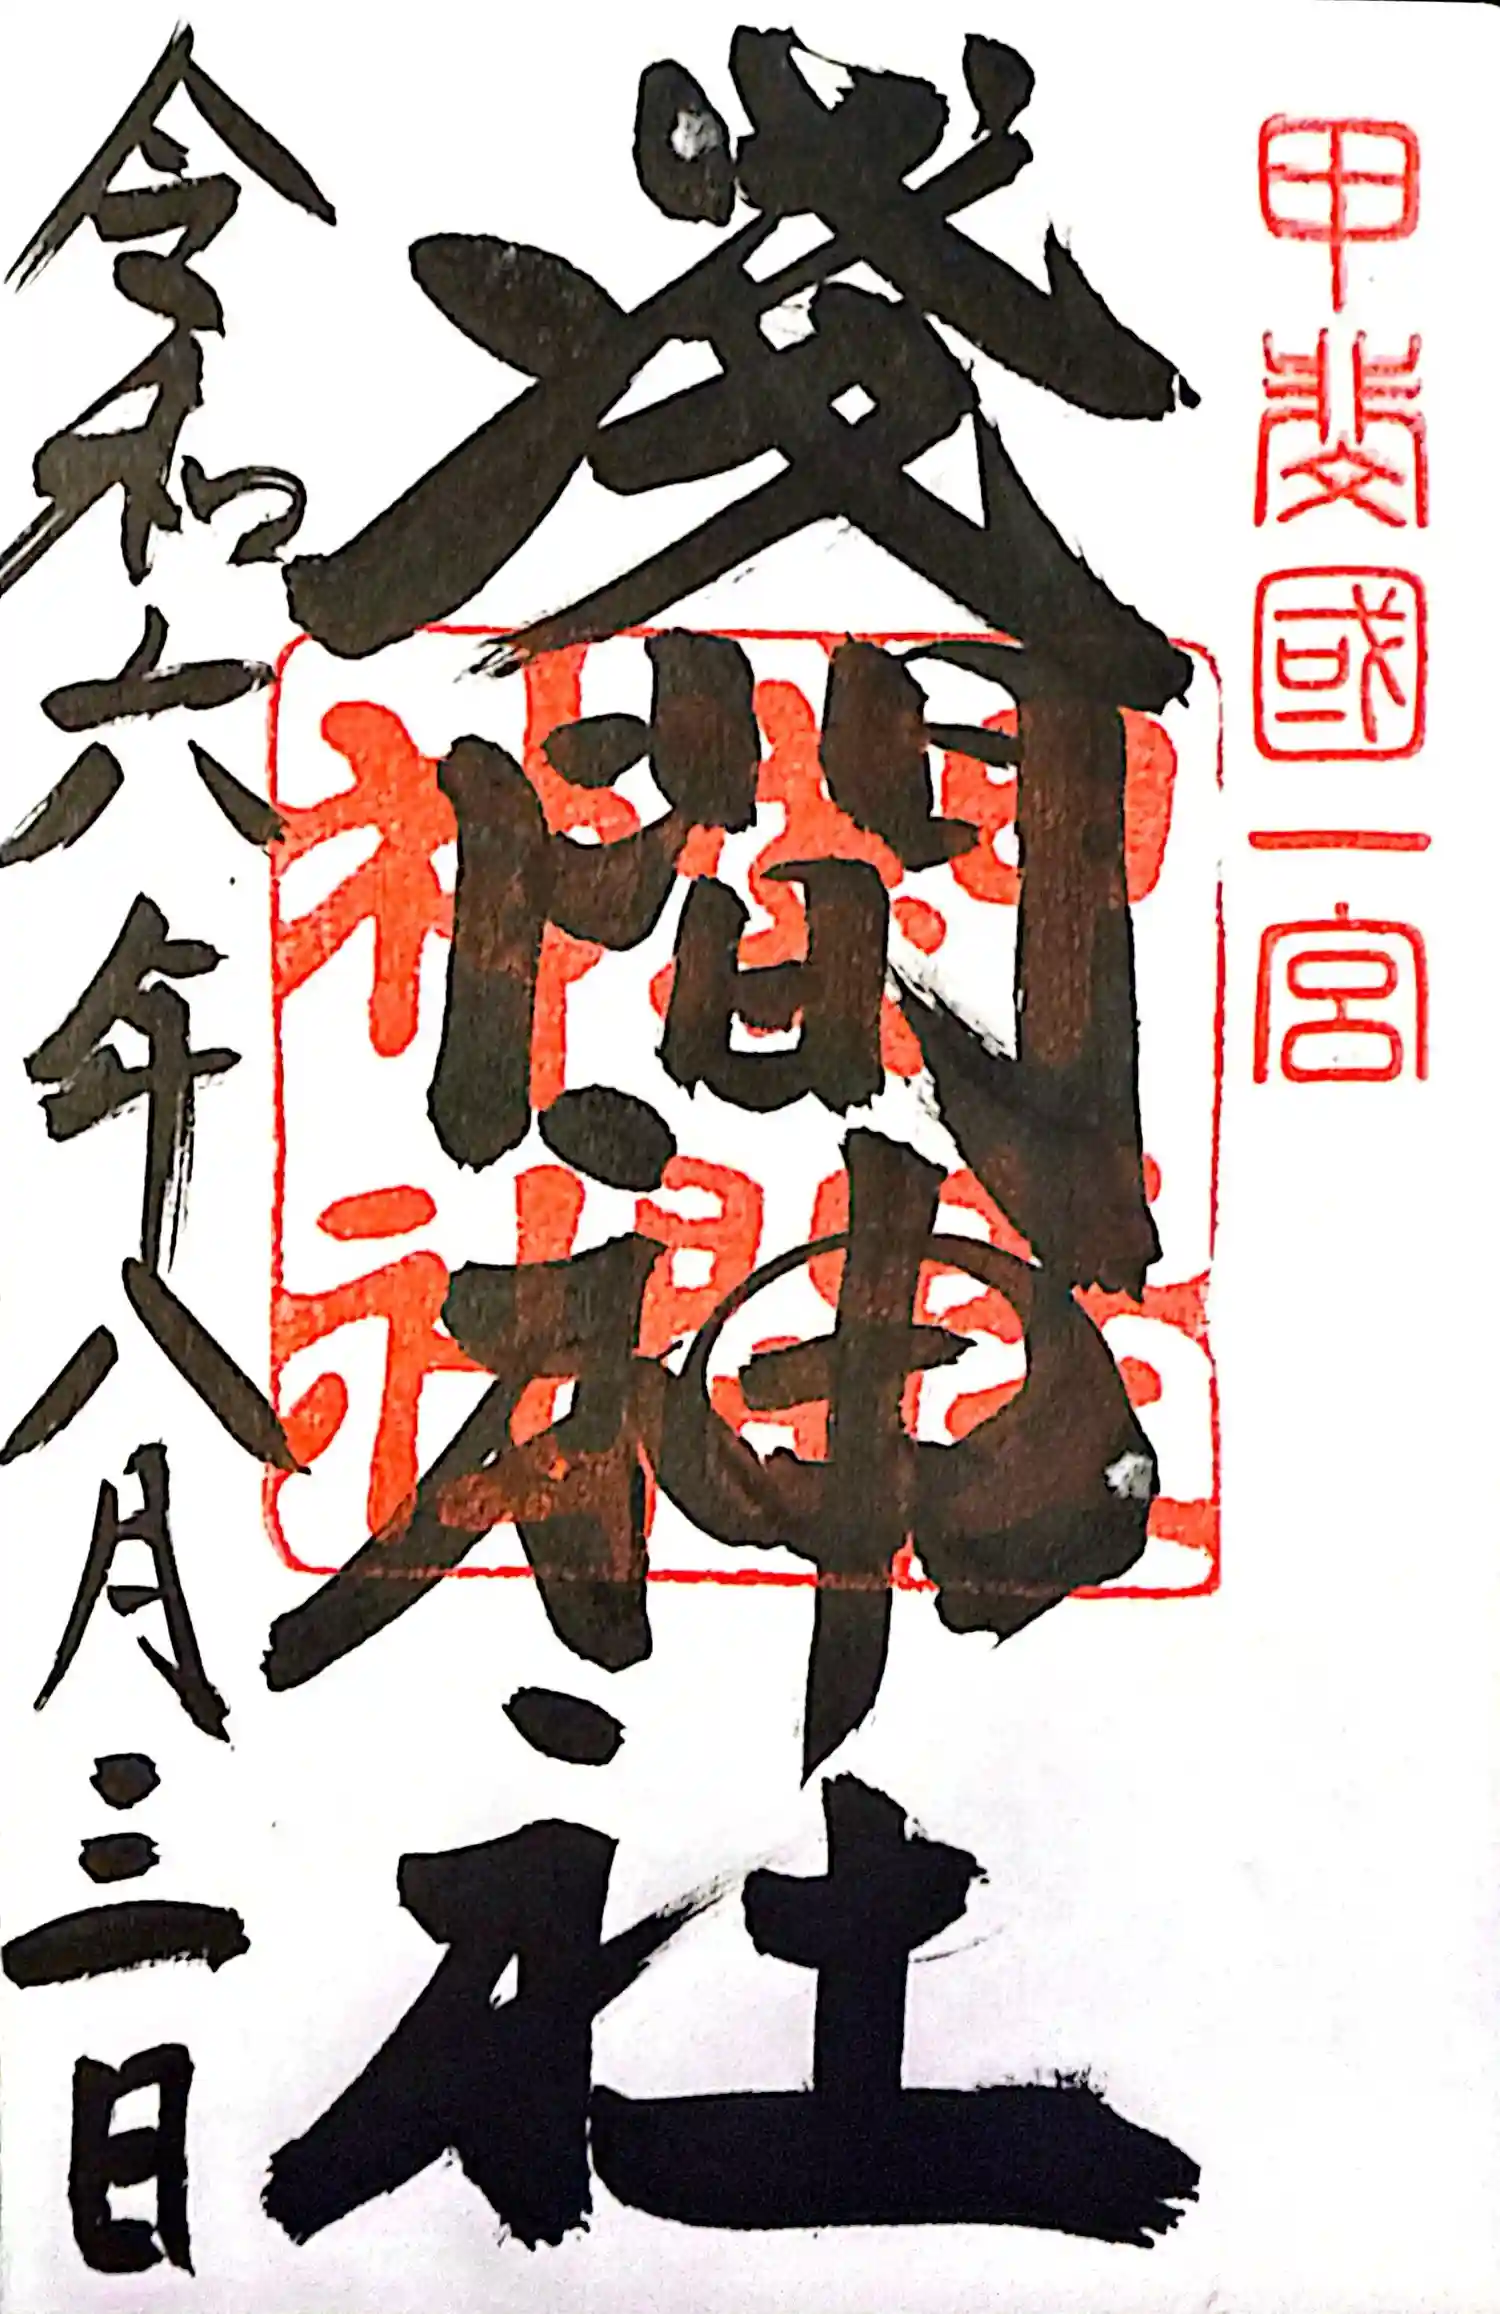 甲斐國一宮
淺間神社
令和六年八月三日